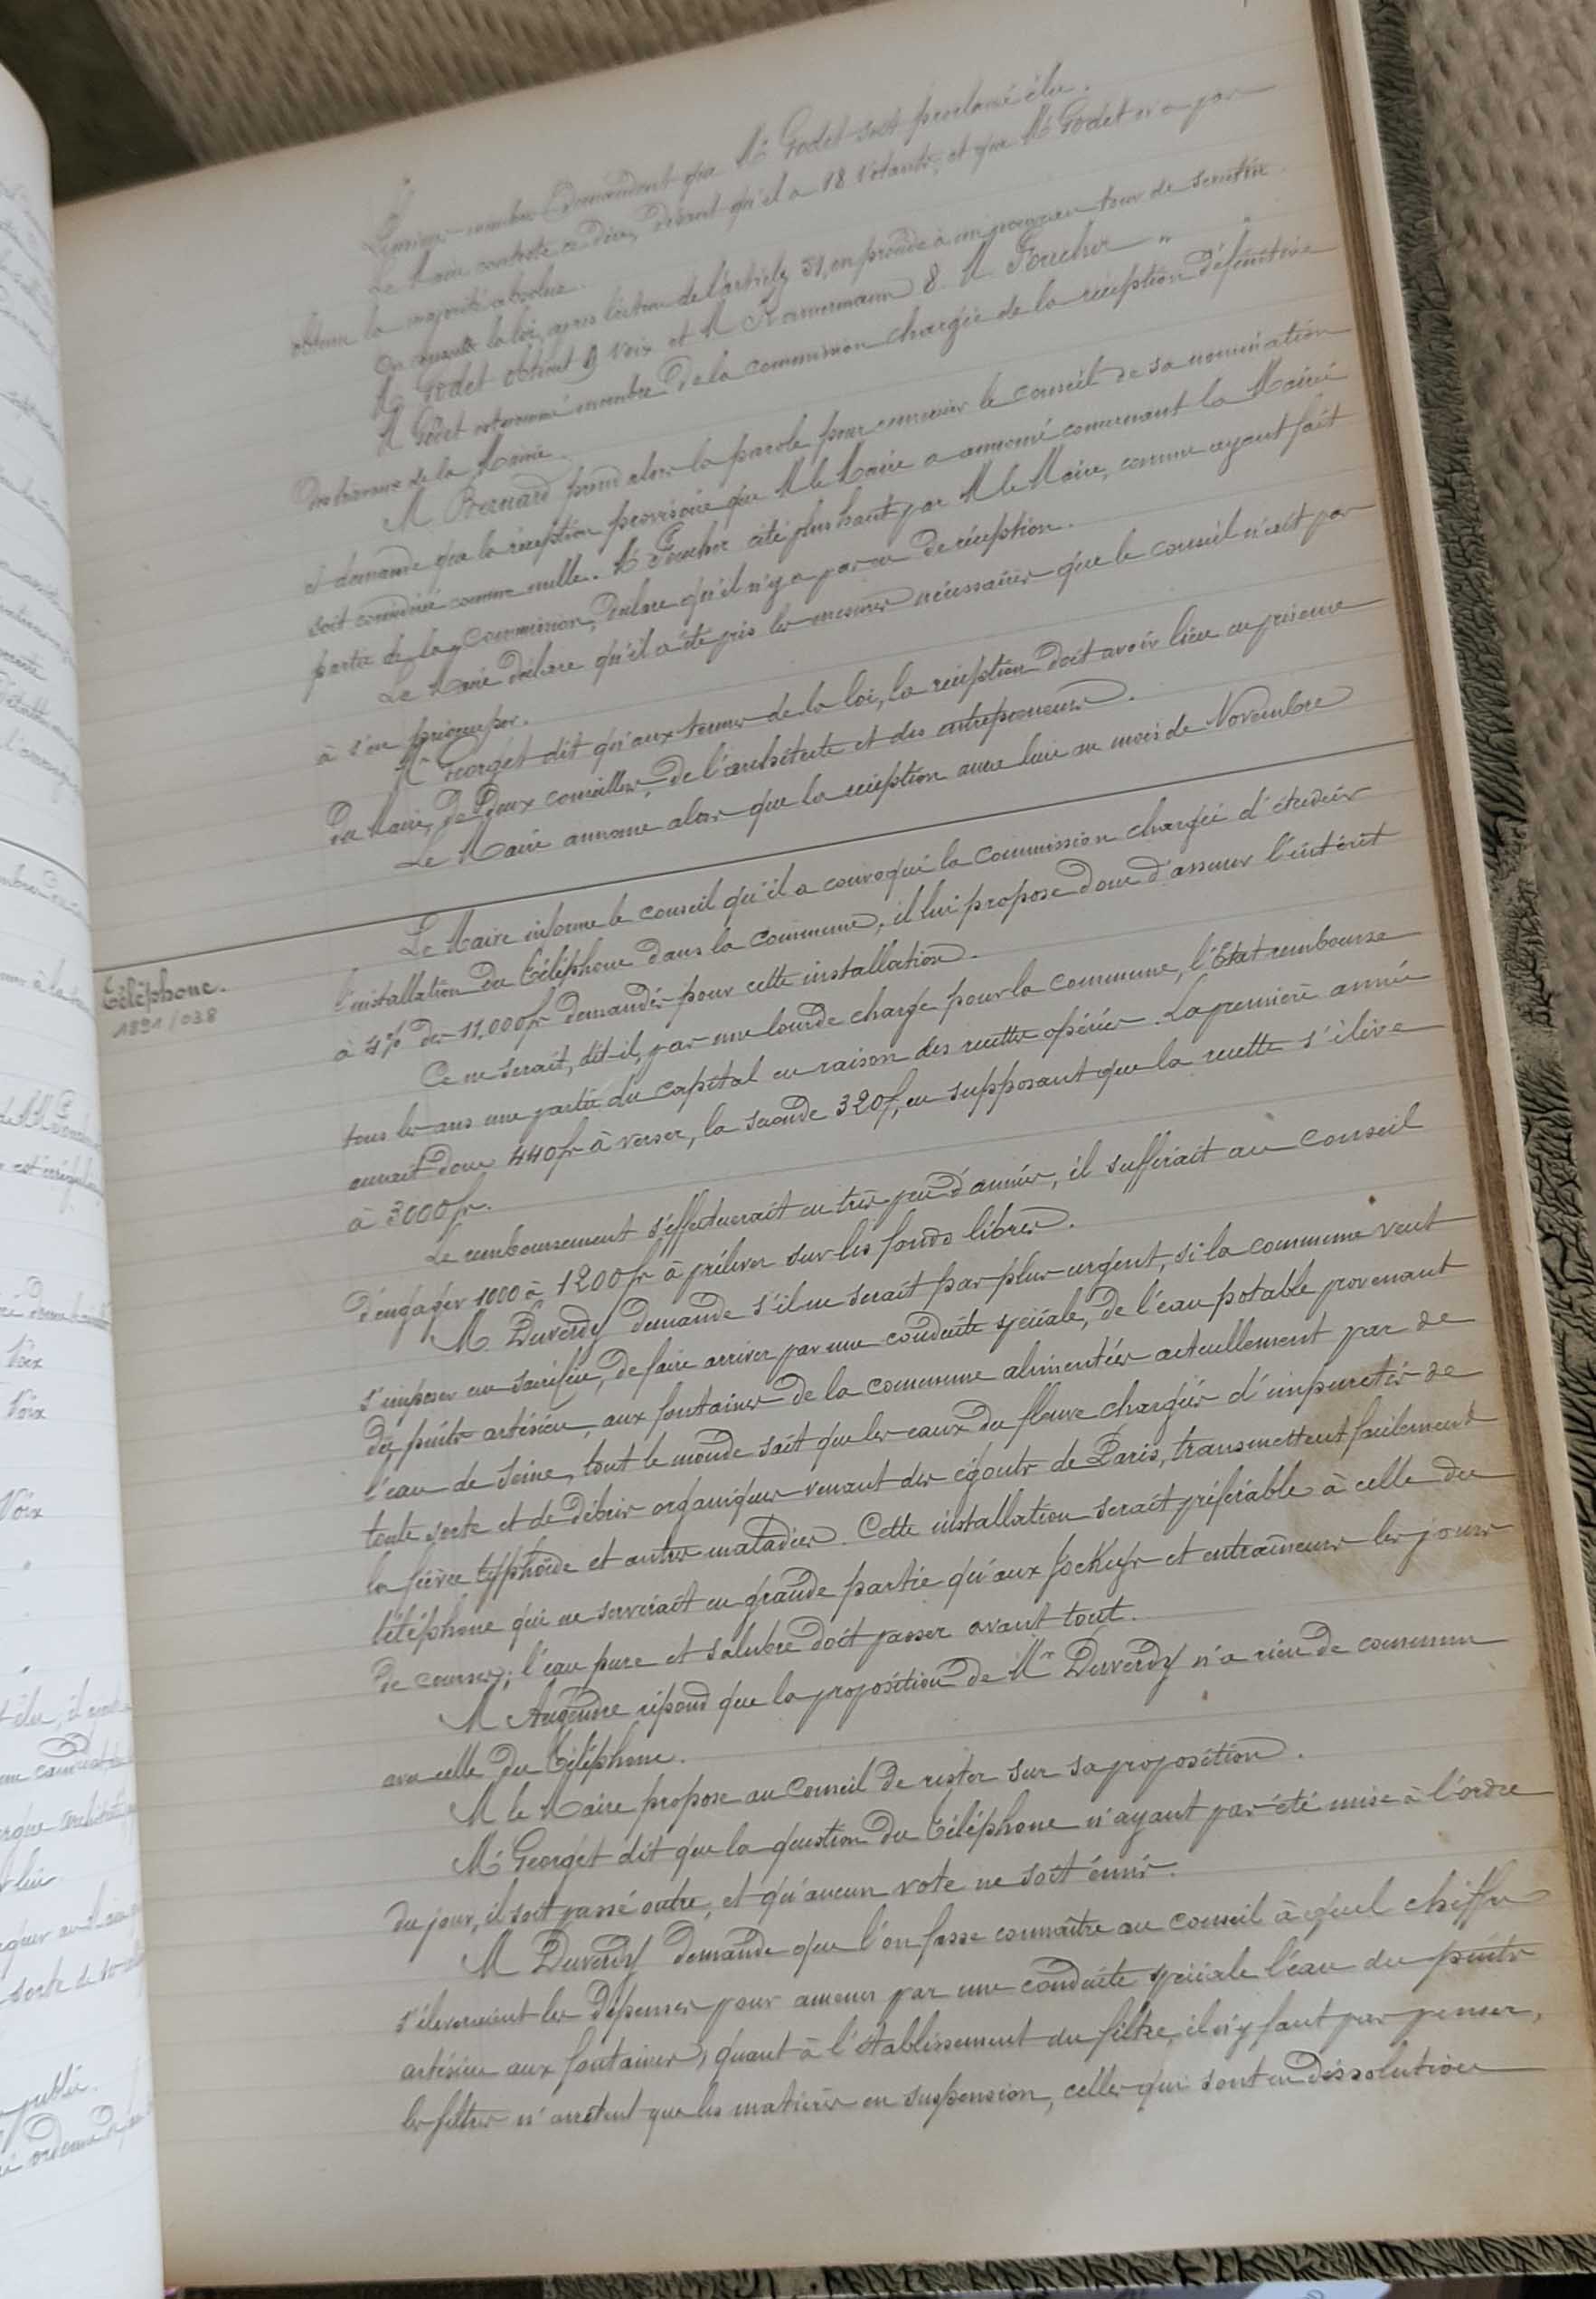 Plusieurs membres demandent que Mr Godet soit proclamé élu.
Le Maire contredire, disant qu'il a 18 votants, et que Mr Godet n'a pas
obtenu la majorité absolue.
On consulte la loi, après lecture de l'article 51, on procède à un nouveau tour de scrutin.
Mr Godet obtient 9 voix et M 8. M Foucher "
M Godet est nommé membre de la commission chargée de la réception définitive
des travaux de la Mairie.
M Bernard prend alors la parole pour remercier le conseil de sa nomination
et demande que la réception provisoire que M le Maire a annoncé concernant la Mairie
soit considérée comme nulle. Mr Foucher cité plus haut par M le Maire, comme ayant fait
partie de la Commission, déclare qu'il n'y a pas eu de réception.
Le Maire déclare qu'il a été pris les mesures nécessaires que le conseil n'ait pas
à s'en préoccuper.
Mr Georget dit qu'aux termes de la loi, la réception doit avoir lieu en présence
du Maire, de Deux conseillers, de l'architecte et des entrepreneurs.
Le Maire annonce alors que la réception aura lieu au mois de Novembre
Téléphone.
1891/038
Le Maire informe le conseil qu'il a convoqué la Commission chargée d'étudier
l'installation du Téléphone dans la Commune, il lui propose donc d'assurer l'intérêt
à 4% des 11.000fr demandés pour cette installation.
Ce ne serait, dit-il, pas une lourde charge pour la commune, l'Etat rembourse
tous les ans une partie du capital en raison des recettes opérées. La première année
aurait donc 440fr à verser, la seconde 320f, en supposant que la recette s'élève
à 3000fr.
Le remboursement s'effectuerait en très peu d'années, il suffirait au Conseil
d'engager 1000 à 1200fr à prélever sur les fonds libres.
M Duverdy demande s'il ne serait pas plus urgent, si la commune veut
s'imposer un sacrifice, de faire arriver par une conduite spéciale, de l'eau potable provenant
du puits artésien, aux fontaines de la commune alimentées actuellement par de
l'eau de Seine, tout le monde sait que les eaux du fleuve chargées d'impuretés de
toute sorte et de débris organiques venant des égouts de Paris, transmettent facilement
la fièvre typhoïde et autres maladies. Cette installation serait préférable à celle du
téléphone qui ne servirait en grande partie qu'aux Jockeys et entraîneurs les jours
de courses; l'eau pure et salubre doit passer avant tout.
M répond que la proposition de Mr Duverdy n'a rien de commun
avec celle du Téléphone.
M le Maire propose au Conseil de rester sur sa proposition.
Mr Georget dit que la question du Téléphone n'ayant pas été mise à l'ordre
du jour, il soit passé outre, et qu'aucun vote ne soit émis.
M Duverdy demande que l'on fasse connaître au Conseil à quel chiffre
s'élèveraient les dépenses pour amener par une conduite spéciale l'eau du puits
artésien aux fontaines, quant à l'établissement du filtre, il n'y faut pas penser,
les filtres n'arrêtent que les matières en suspension, celles qui sont en dissolution